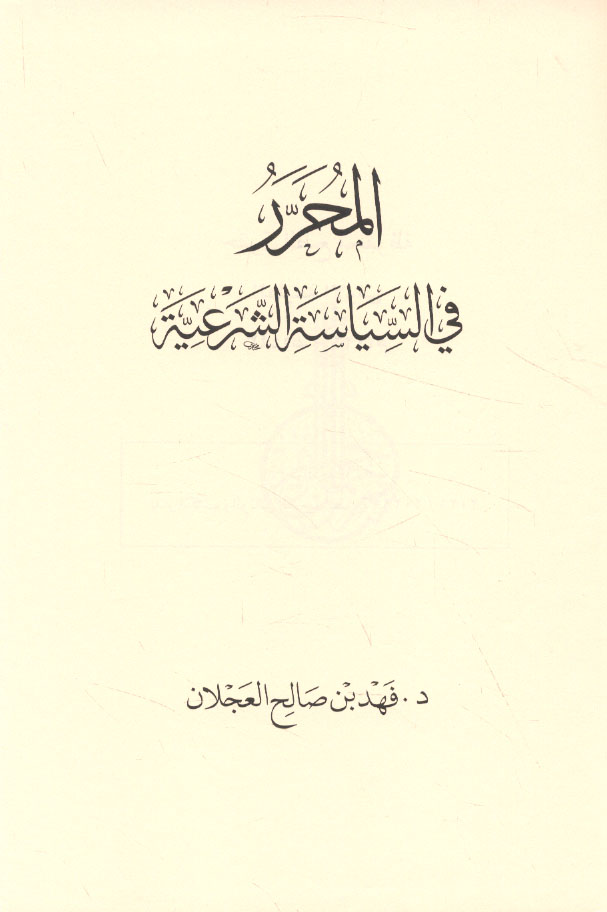 المُحَرَّرُ
في السِّيَاسَةِ الشَّرْعِيَّةِ
د. فَهْد بْن صَالِح العَجْلان